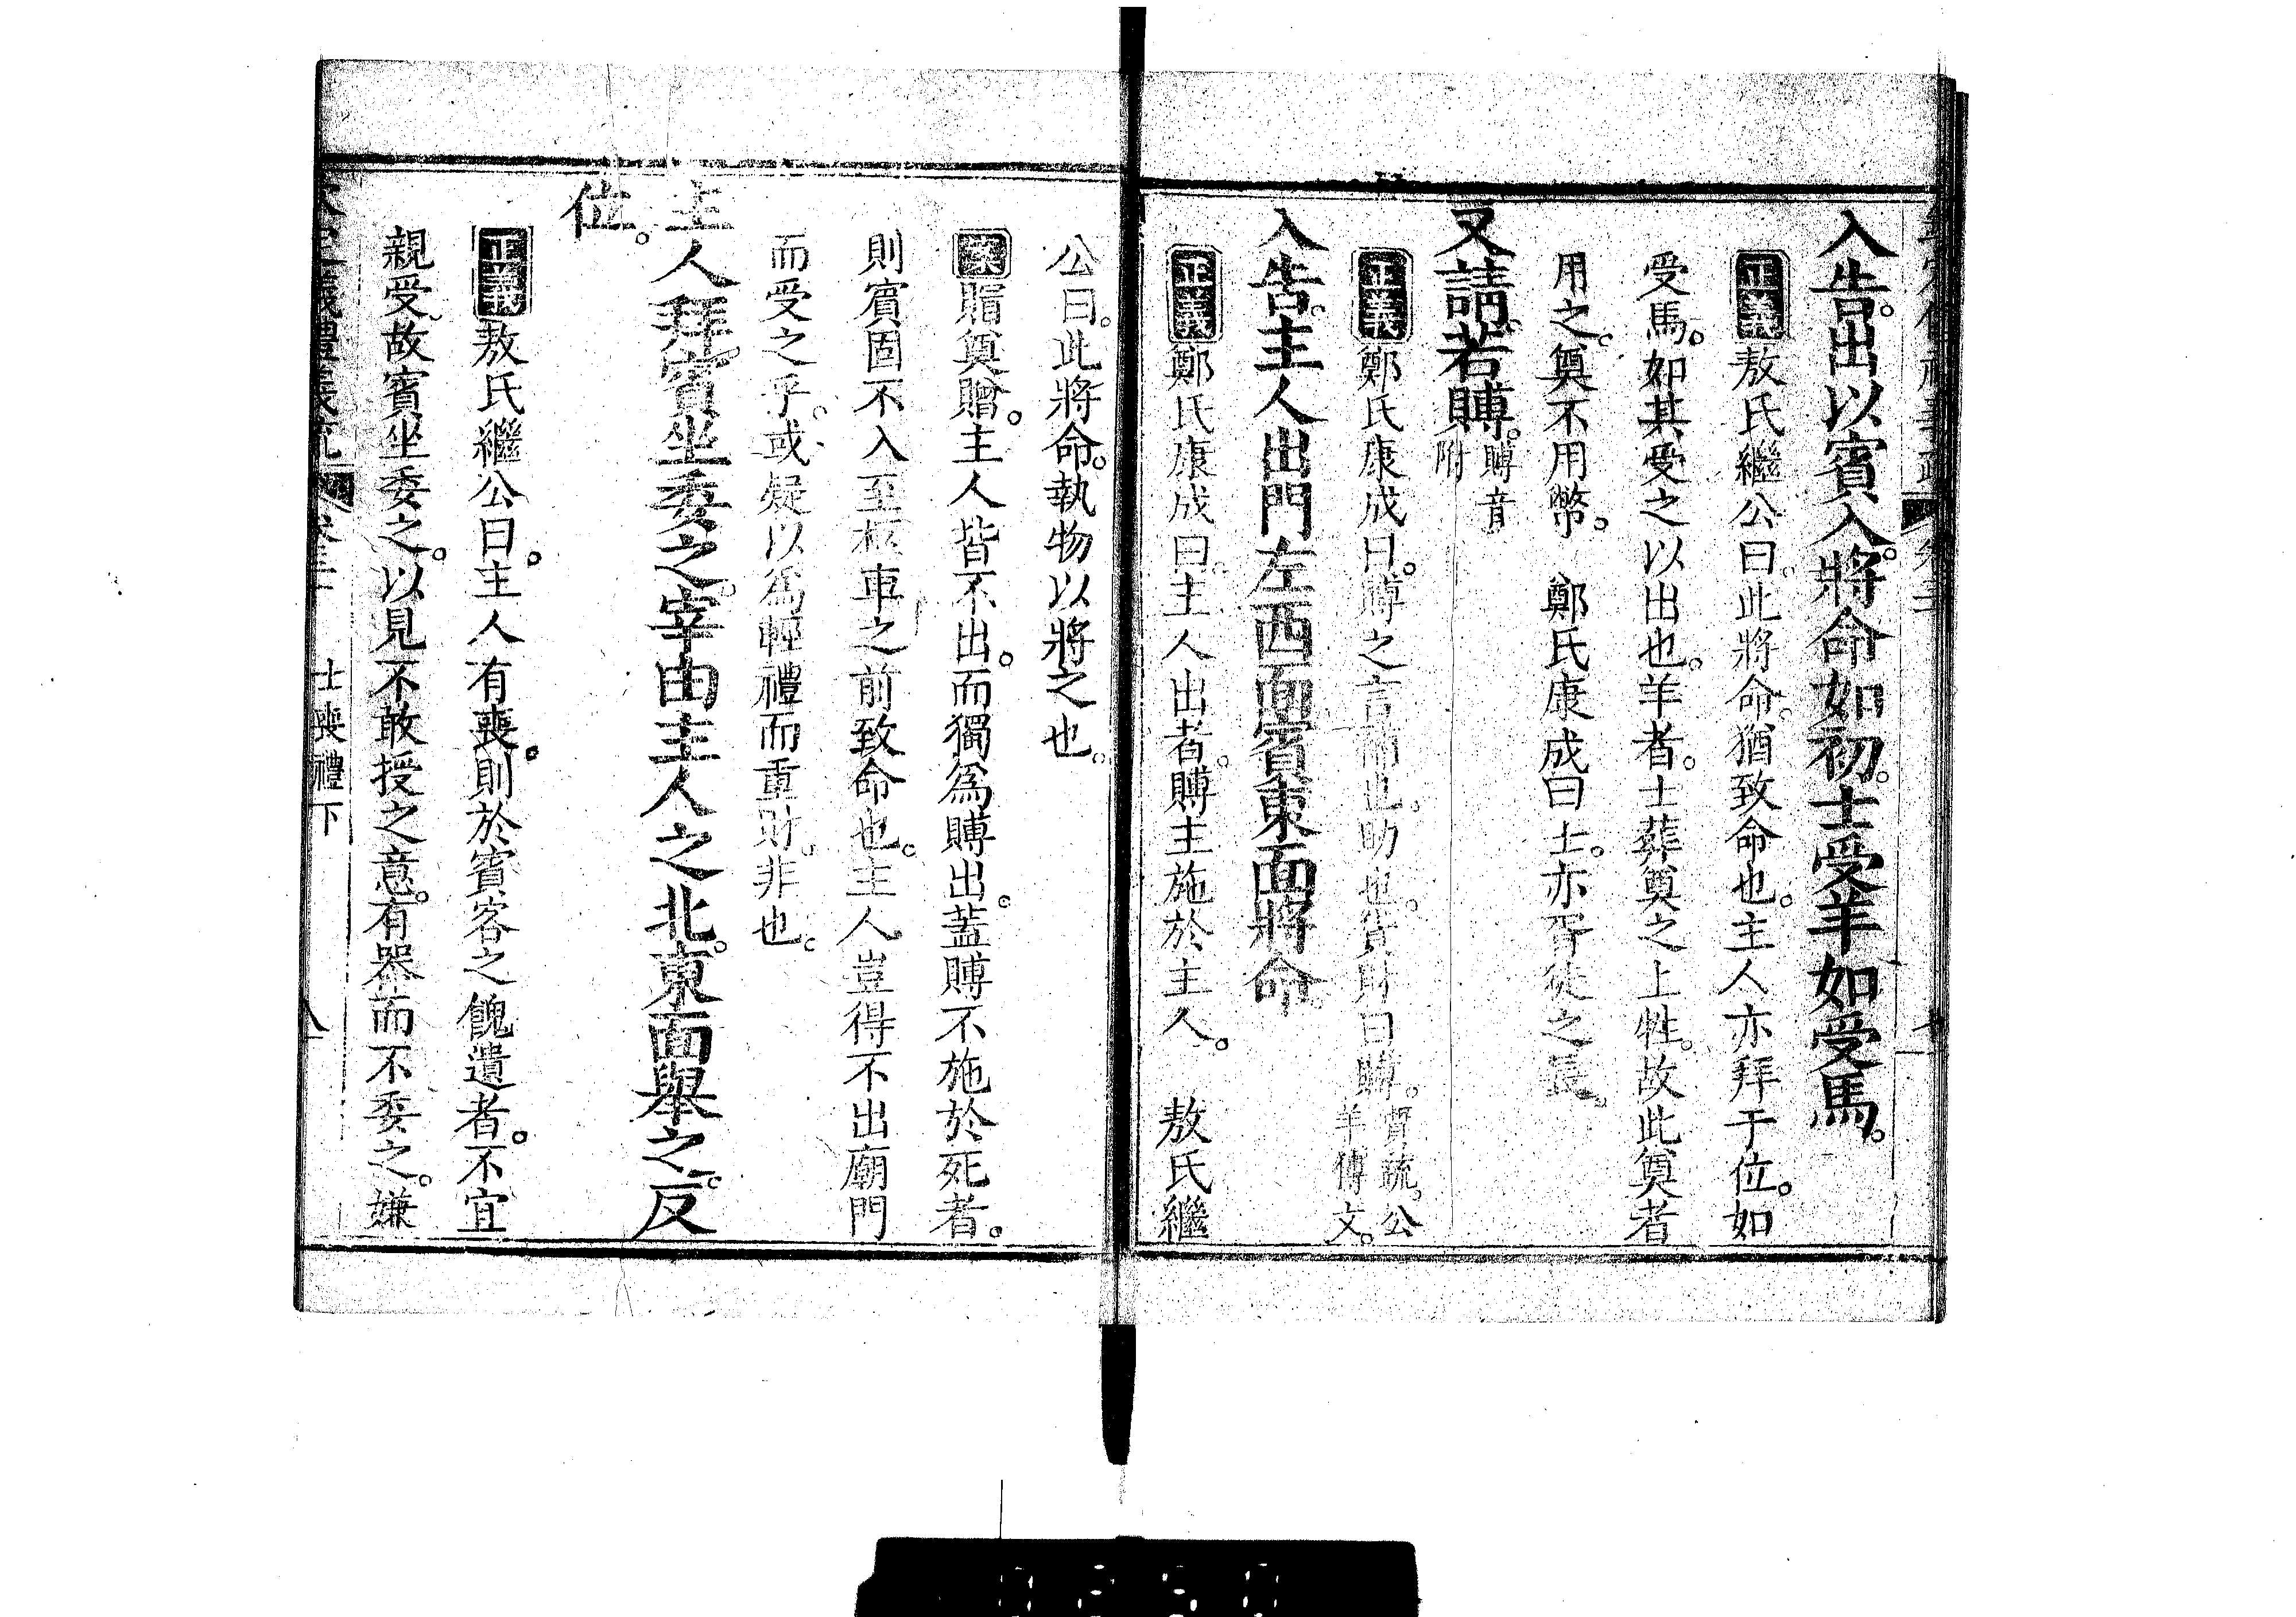 入告。出以賓入。將命如初。士受羊如受馬。
正義敖氏繼公曰。此將命。猶致命也。主人亦拜于位。如
受馬。如其受之以出也。羊者。士葬奠之上牲。故此奠者
用之。奠不用幣。 鄭氏康成曰。士。亦胥徒之長。
又請。若賻。賻音附
正義鄭氏康成曰。賻之言補也。助也。貨財曰賻。賈疏。公羊傳文。
入告。主人出門左西面。賓東面將命。
正義鄭氏康成曰。主人出者。賻主施於主人。 敖氏繼
公曰。此將命。執物以將之也。
案賵奠贈。主人皆不出。而獨爲賻出。蓋賻不施於死者。
則賓固不入至柩車之前致命也。主人豈得不出廟門
而受之乎。或疑以爲輕禮而重財。非也。
主人拜。賓坐委之。宰由主人之北。東面舉之。反
位。
正義敖氏繼公曰。主人有喪。則於賓客之餽遺者。不宜
親受。故賓坐委之。以見不敢授之意。有器而不委之。嫌
士喪禮下
八